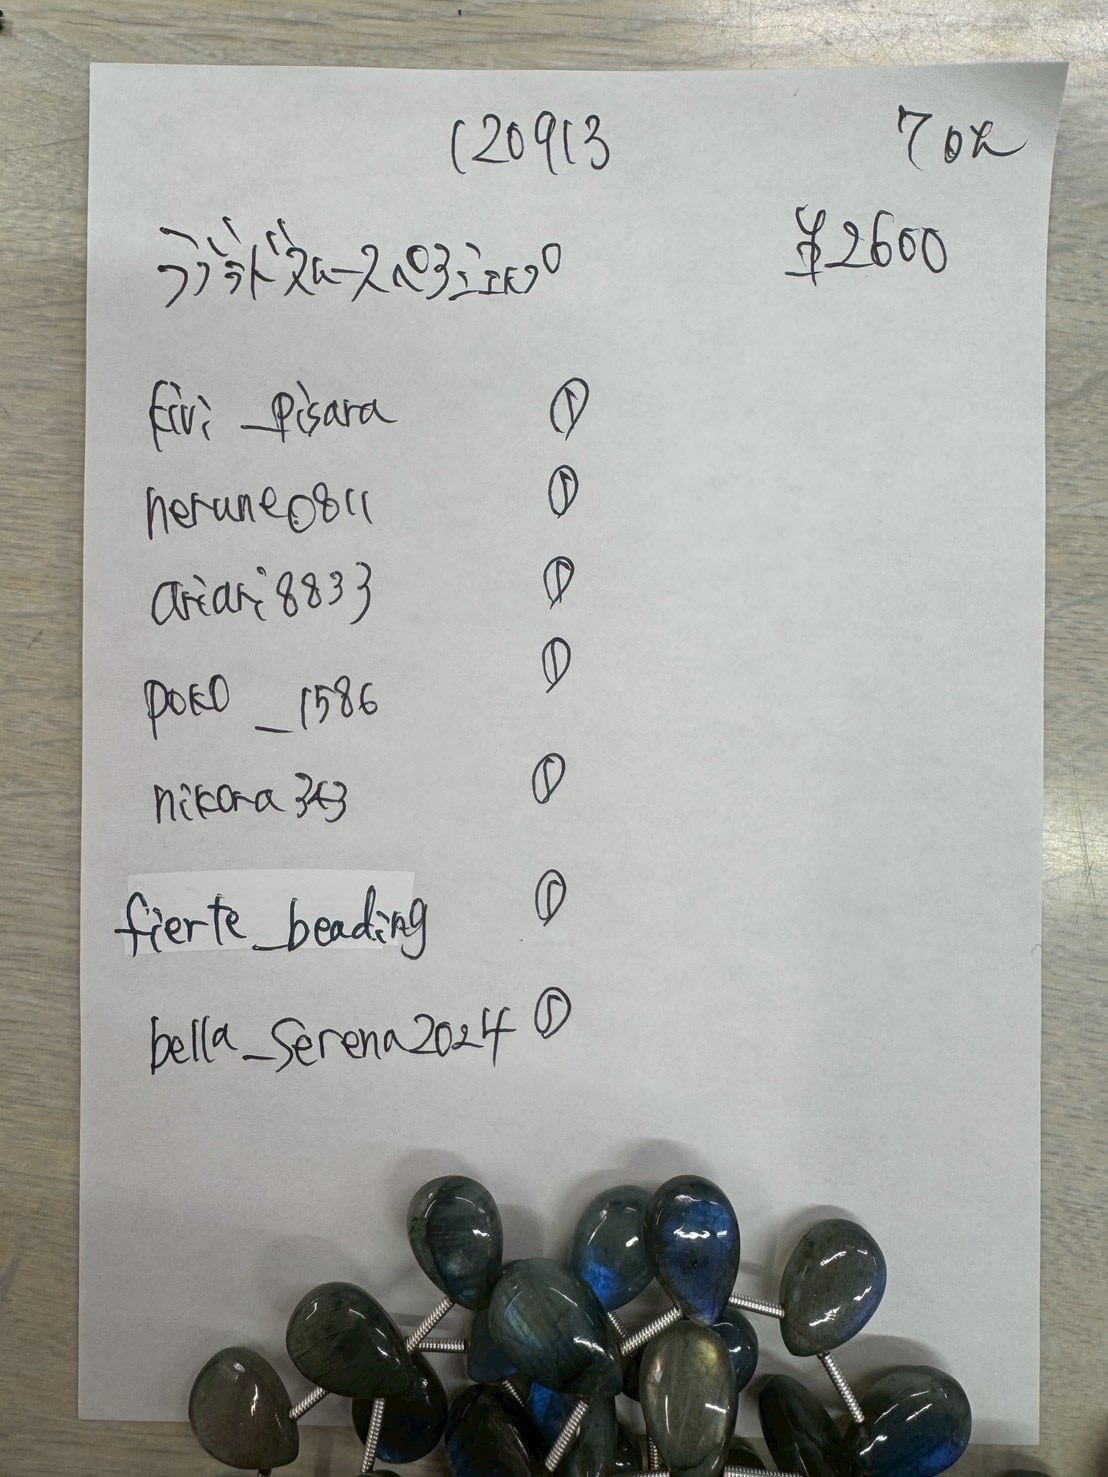 120913 7のム
¥2600
kivi_pisara ①
nerune0811 ①
ariari8833 ①
poko_1586 ①
nikora343 ①
fierte_beading ①
bella_serena2024 ①